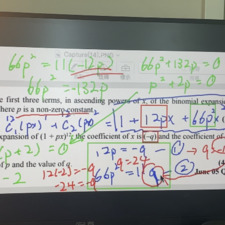 66p² = 11(-12p)
66p² = -132p
66p² + 132p = 0
p² + 2p = 0
e first three terms, in ascending powers of x, of the binomial expans
here p is a non-zero constant.
1 + 12px + 66p²x
expansion of (1 + px)¹², the coefficient of x is (-q) and the coefficient of
p + 2) = 0
12p = -q
①
of p and the value of q.
- 2
12(-2) = -q
-24 = -q
q = 24
66p² = 11q
②
(4
June 05 Q